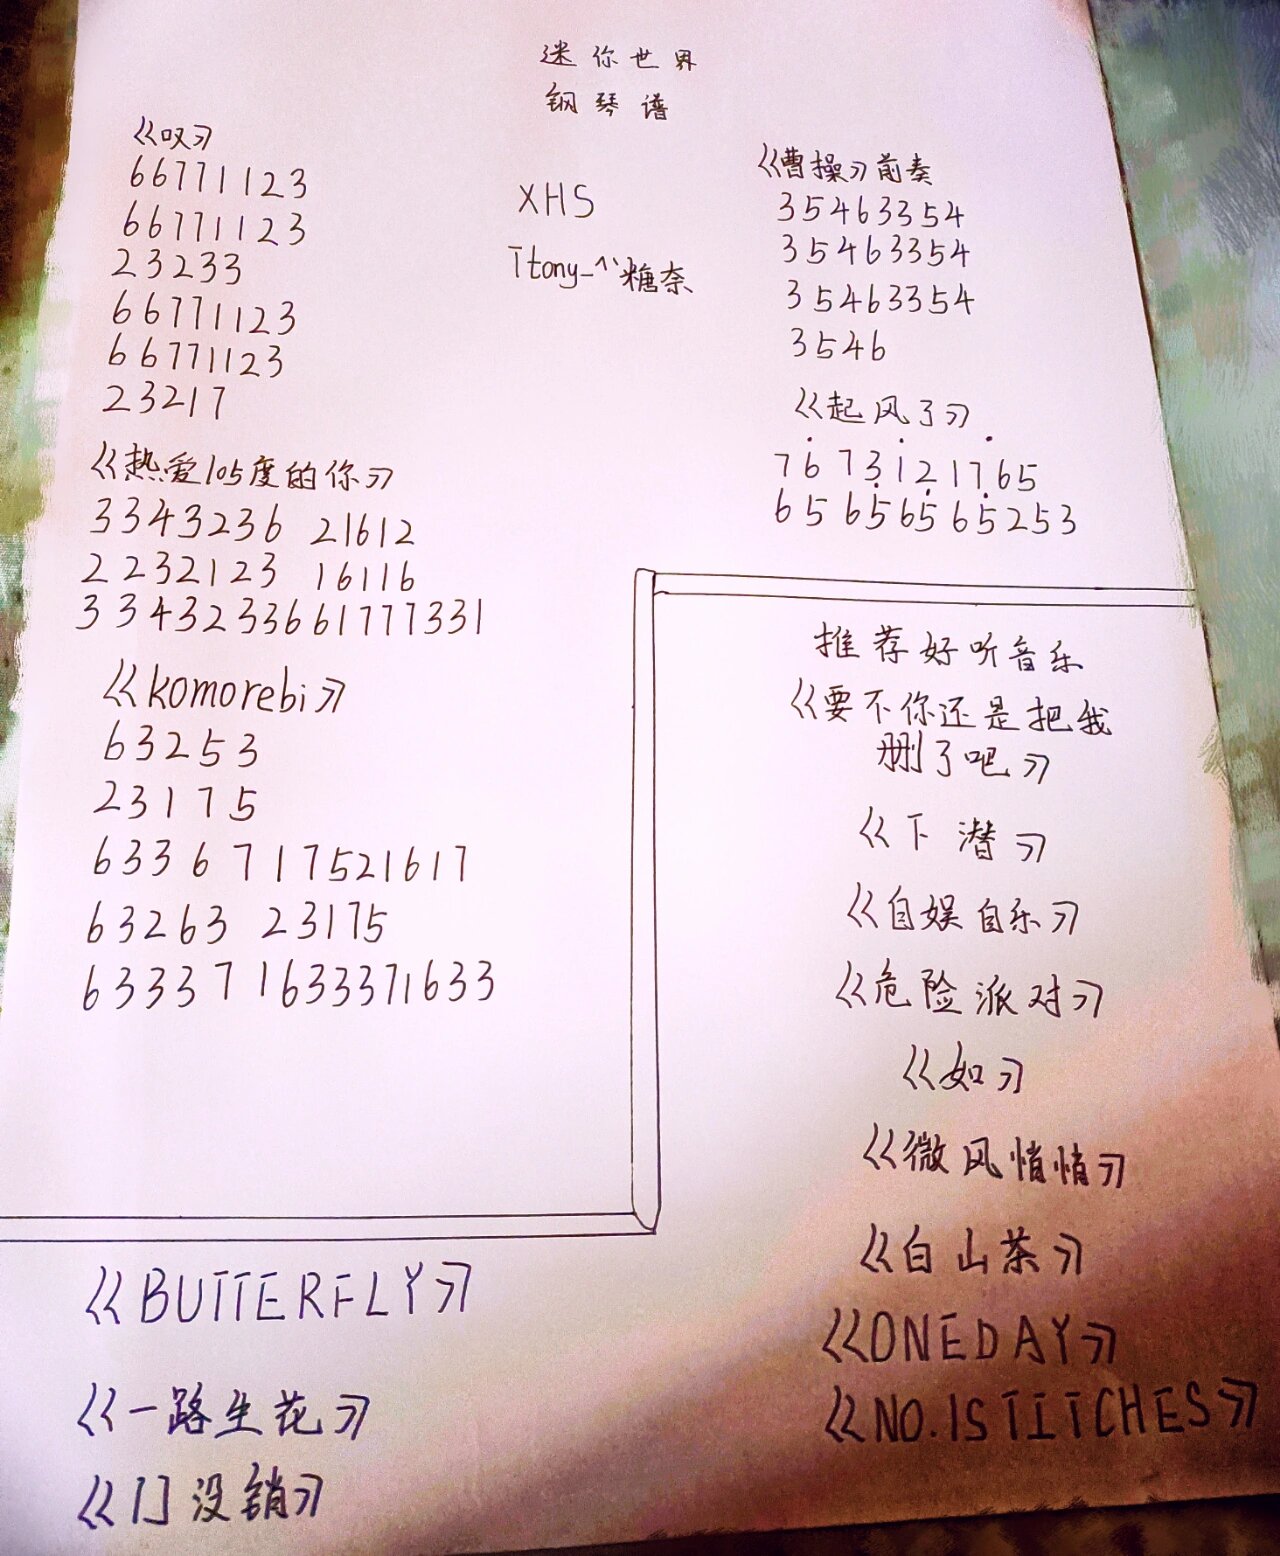 迷你世界
钢琴谱
XHS
Itony_^`糖奈
《叹》
66771123
66771123
23233
66771123
66771123
23217
《热爱105度的你》
3343236 21612
2232123 16116
3343233661777331
《komorebi》
63253
23175
6336717521617
63263 23175
633371633371633
《曹操》前奏
35463354
35463354
35463354
3546
《起风了》
7673121765
65656565253
推荐好听音乐
《要不你还是把我
删了吧》
《下潜》
《自娱自乐》
《危险派对》
《如》
《微风悄悄》
《白山茶》
《ONEDAY》
《NO.1STITCHES》
《BUTTERFLY》
《一路生花》
《门没销》